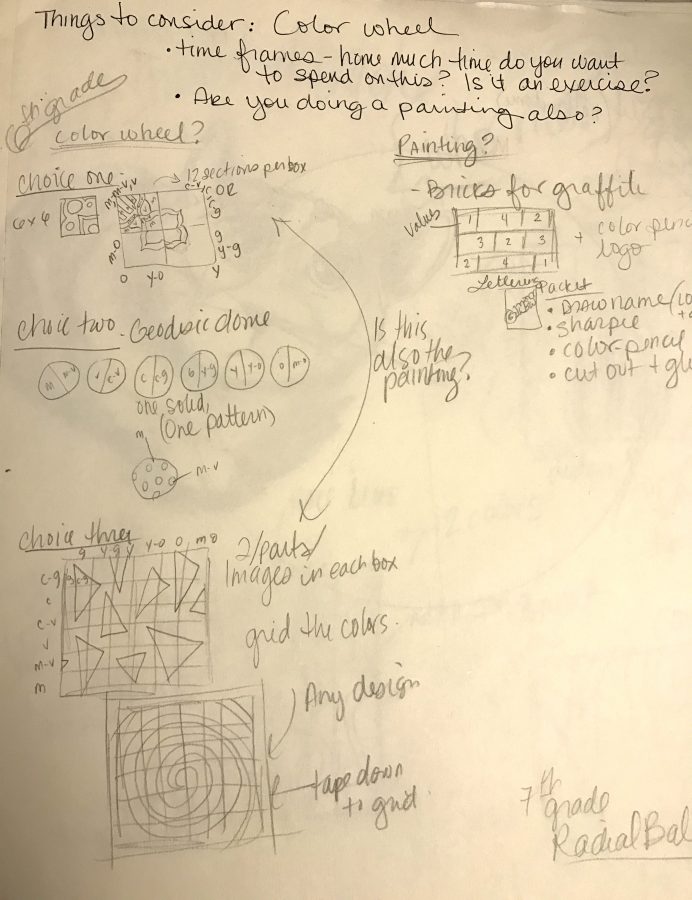 Things to consider: Color wheel
• time frames - how much time do you want
to spend on this? Is it an exercise?
• Are you doing a painting also?
6th grade
Color wheel?
Painting?
choice one
→ 12 sections per box
6x6
m m-v, v
c-v c
OR
c-g
g
y-g
m-o
o y-o y
- Bricks for graffiti
values
1 4 2
3 2 3
2 4 1
+ color penc
logo
Lettering Packet
• Draw name
• sharpie
• color-pencil
• cut out + glu
choice two - Geodesic dome
m m-v
v c-v
c c-g
g y-g
y y-o
o m-o
one solid,
(One pattern)
m
m-v
Is this
also the
painting?
choice three
g y-g y y-o o m-o
c-g
c
c-v
v
m-v
m
2/parts/
Images in each box
grid the colors.
Any design
tape down
to grid
7th
grade
Radial Bal